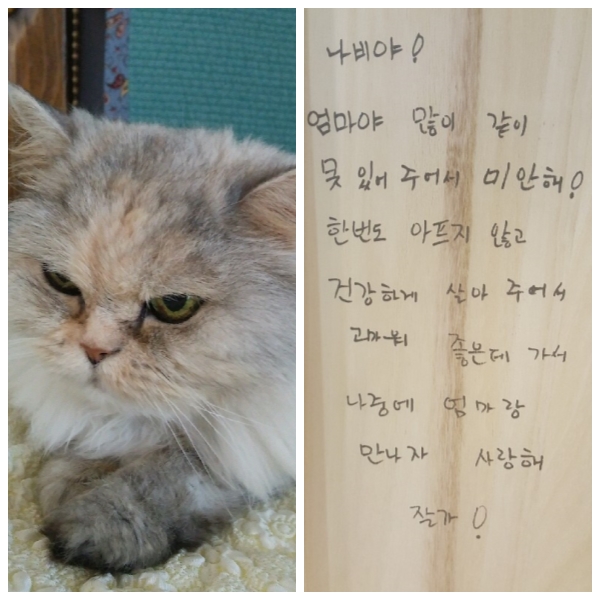 나비야!
엄마야 많이 같이
못 있어 주어서 미안해!
한번도 아프지 않고
건강하게 살아 주어서
고마워 좋은데 가서
나중에 엄마랑
만나자 사랑해
잘가!